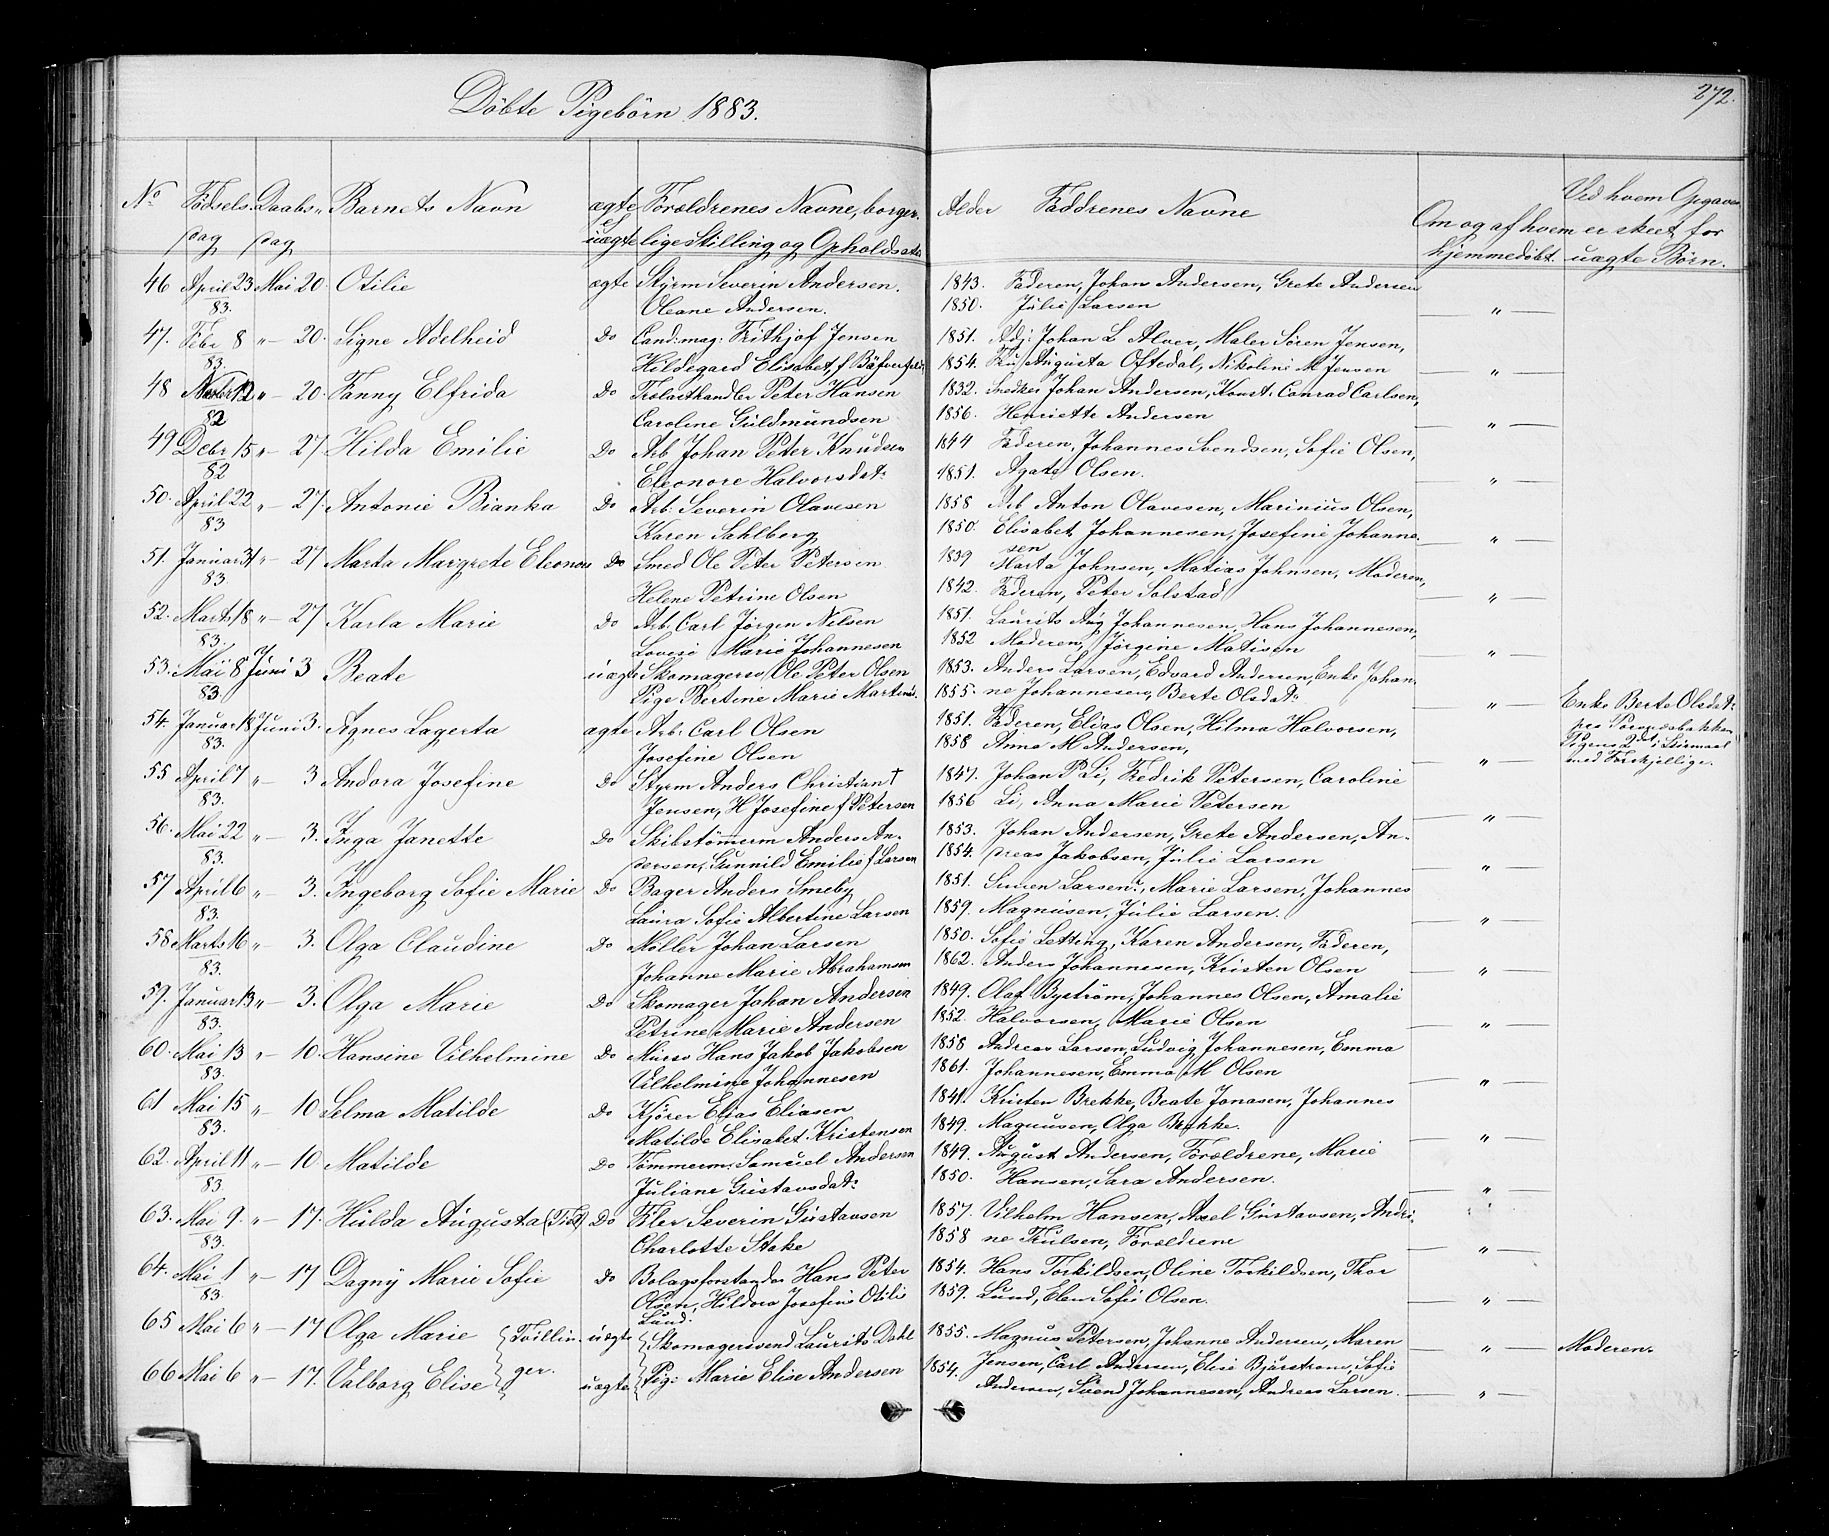 Döbte Pigebörn 1883.
272.
No Födsels Daabs Barnets Navn ægte Forældrenes Navne, borger- Alder Faddrenes Navne Om og af hvem Ved hvem Opgaven
dag dag el uægte lige Stilling og Opholdssted hjemmedöbt er skeet for uægte Börn.
46 April 23 Mai 20. Otilie ægte Styrm Severin Andersen. 1843. Faderen, Johan Andersen, Grete Andersen
83. Oleane Andersen. 1850. Julie Larsen "
47. Febr 8 " 20. Signe Adelheid Do Cand: mag: Frithjof Jensen 1851. Adj: Johan L Alver, Maler Sören Jensen,
83. Hildegard Elisabet, f 1854. Fru Augusta Oftedal, Nikoline M Jensen "
48 12 " 20. Fanny Elfrida Do Peter Hansen 1832. Snedker Johan Andersen, Konst: Conrad Carlsen,
82 Caroline Guldmundsen 1856. Henriette Andersen "
49 Debr 15 " 27. Hilda Emilie Do Arb Johan Peter Knudsen 1844 Faderen, Johannes Svendsen, Sofie Olsen,
82 Eleonore Halvorsdat: 1851. Agate Olsen. "
50. April 22 " 27. Antonie Bianka Do Arb: Severin Olavesen 1858 Arb Anton Olavesen, Marinius Olsen,
83 Karen Sahlberg 1850. Elisabet Johannesen, Josefine Johanne-
sen "
51. Januar 31 " 27 Marta Margrete Eleonora Do Smed Ole Peter Petersen 1839 Marta Johnsen, Matias Johnsen, Moderen,
83. Helene Petrine Olsen 1842. Faderen, Peter Solstad "
52. Marts 18 " 27 Karla Marie Do Arb. Carl Jörgen Nilsen 1851. Laurits Aug Johannesen, Hans Johannesen,
83. Lovise Marie Johannesen 1852 Moderen, Jörgine Matisen "
53. Mai 8 Juni 3 Beate uægte Skomagersv Ole Peter Olsen 1853. Anders Larsen, Edvard Andersen, Enke Johan-
83. Pige Bertine Marie Martins. 1855. ne Johannesen, Berte Olsdat: " Enke Berte Olsdat:
54. Januar 18 Juni 3. Agnes Lagerta ægte Arb: Carl Olsen 1851. Faderen, Elias Olsen, Hilma Halvorsen,
83. Josefine Olsen 1858 Anna M Andersen, " Pigens 2det Leiermaal
med Forskjellige.
55 April 7 " 3 Andora Josefine Do Styrm Anders Christian † 1847. Johan P Li, Fredrik Petersen, Caroline
83. Jensen, H Josefine f Petersen 1856 Li, Anna Marie Petersen "
56. Mai 22 " 3. Inga Janette Do Skibstömmerm Anders An- 1853. Johan Andersen, Grete Andersen, An-
83. dersen, Gunnild Emilie f Larsen 1854. dreas Jakobsen, Julie Larsen "
57 April 6 " 3. Ingeborg Sofie Marie Do Bager Anders Smeby, 1851. Larsen, Marie Larsen, Johannes
83. Laura Sofie Albertine Larsen 1859. Magnusen, Julie Larsen. "
58 Marts 16 " 3. Olga Claudine Do Möller Johan Larsen 1850. Sofie Letting, Karen Andersen, Faderen,
83. Johanne Marie Abrahamsen 1862. Anders Johannesen, Kristen Olsen "
59. Januar 13 " 3. Olga Marie Do Skomager Johan Andersen 1849. Olaf Byström, Johannes Olsen, Amalie
83. Petrine Marie Andersen 1852. Halvorsen, Marie Olsen "
60. Mai 13 " 10. Hansine Vilhelmine Do Murer Hans Jakob Jakobsen 1858 Andreas Larsen, Ludvig Johannesen, Emma
83. Vilhelmine Johannesen 1861. Johannesen, Emma M Olsen "
61 Mai 15 " 10 Selma Matilde Do Kjörer Elias Eliasen 1841. Kristen Brekke, Beate Jonasen, Johannes
83. Matilde Elisabet Kristensen 1849. Magnusen, Olga Brekke. "
62. April 11 " 10 Matilde Do Tömmerm: Samuel Andersen 1849. August Andersen, Forældrene, Marie
83. Juliane Gustavsdat: 1850. Hansen, Sara Andersen. "
63. Mai 9. " 17. Hulda Augusta Do Severin Gustavsen 1857. Vilhelm Hansen, Axel Gustavsen, Andri-
83. Charlotte Stake 1858 ne Trulsen, Forældrene "
64. Mai 1 " 17 Dagny Marie Sofie Do Bolagsforstander Hans Peter 1854. Hans Torkildsen, Oline Torkildsen, Thor
83. Olsen, Hildora Josefine Otilie 1859. Lund, Elen Sofie Olsen. "
Lund.
65 Mai 6 " 17 Olga Marie Tvillin- uægte Skomagersvend Laurits Dahl 1855. Magnus Petersen, Johanne Andersen, Maren " Moderen.
66 Mai 6 " 17. Valborg Elise ger. uægte Pige Marie Elise Andersen 1854. Jensen, Carl Andersen, Elise Bjurstrom, Sofie
Andersen, Svend Johannesen, Andreas Larsen. "